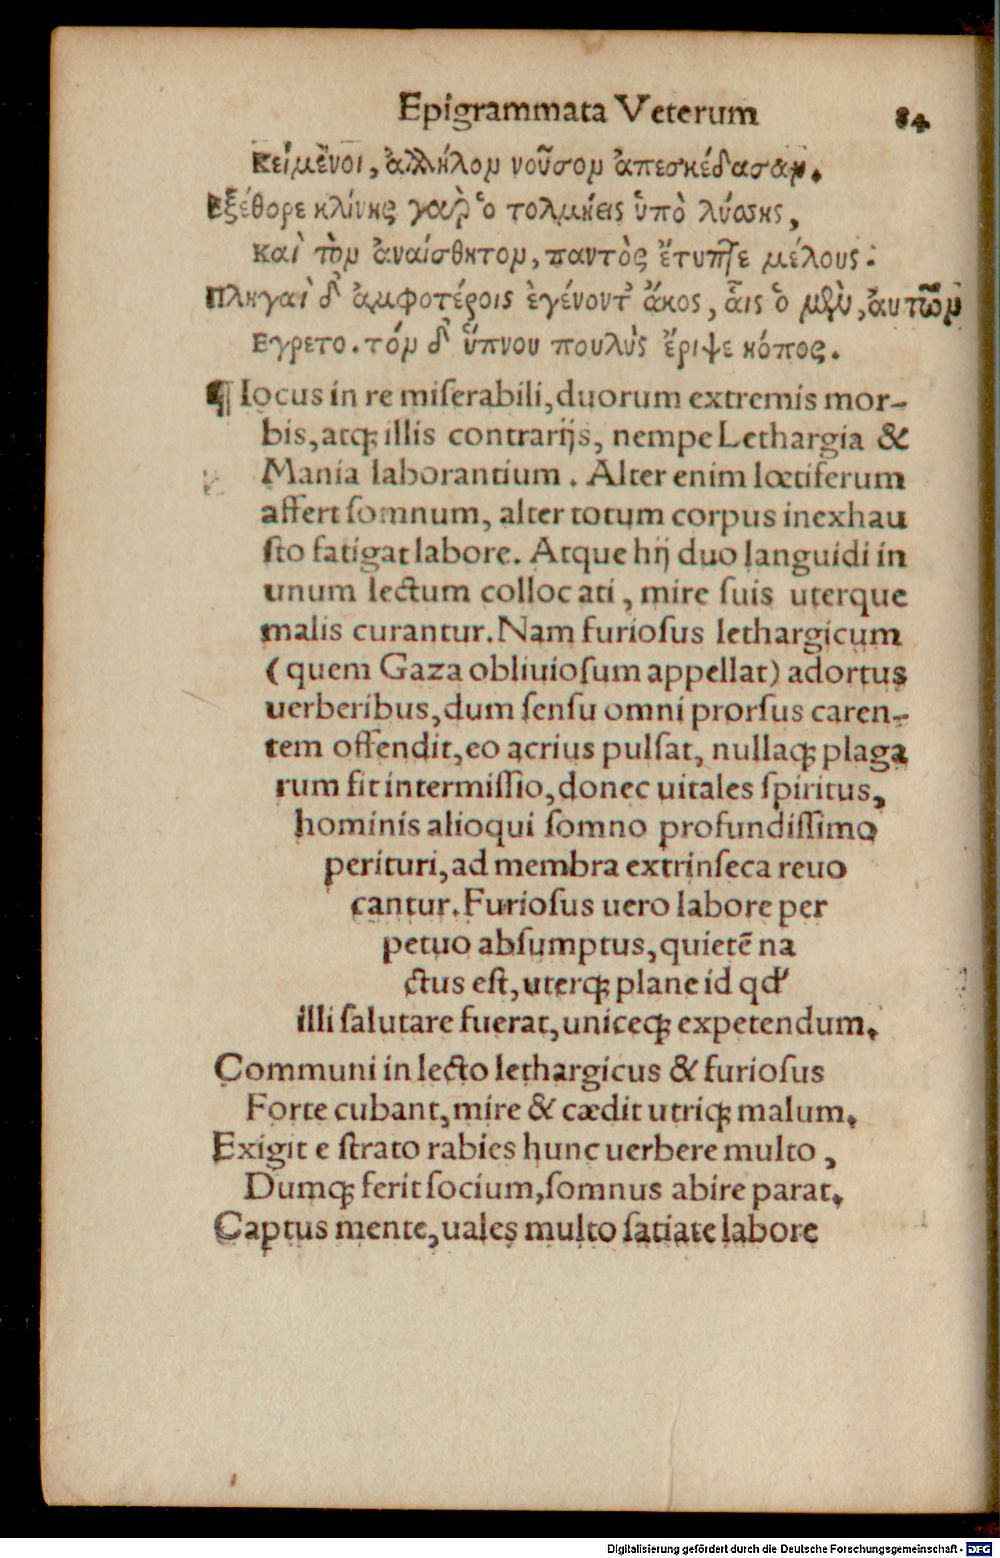 Epigrammata Veterum 84
κείμενοι, ἀλλήλον νοῦσον ἀπεσκέδασαν.
Εξέθορε κλίνης γαὰρ ὁ τολμήεις ὑπὸ λύσσης,
καὶ τὸν ἀναίσθητον, παντὸς ἔτυπτε μέλους·
Πληγαὶ δ' ἀμφοτέροις ἐγένοντ' ἄκος, αἷς ὁ μὲν, ἀυτῶν
Εγρετο. τόν δ' ὕπνου πουλὺς ἔριψε κόπος.
¶ Iocus in re miſerabili, duorum extremis mor-
bis, atq; illis contrarijs, nempe Lethargia &
Mania laborantium. Alter enim lœtiferum
affert ſomnum, alter totum corpus inexhau
ſto fatigat labore. Atque hij duo languidi in
unum lectum colloc ati, mire ſuis uterque
malis curantur. Nam furioſus lethargicum
(quem Gaza obliuioſum appellat) adortus
uerberibus, dum ſenſu omni prorſus caren-
tem offendit, eo acrius pulſat, nullaq; plaga
rum fit intermiſſio, donec uitales ſpiritus,
hominis alioqui ſomno profundiſſimo
perituri, ad membra extrinſeca reuo
cantur. Furioſus uero labore per
petuo abſumptus, quietē na
ctus eſt, uterq; plane id qd'
illi ſalutare fuerat, uniceq; expetendum.
Communi in lecto lethargicus & furioſus
Forte cubant, mire & cædit utriq; malum.
Exigit e ſtrato rabies hunc uerbere multo,
Dumq; ferit ſocium, ſomnus abire parat.
Captus mente, uales multo ſatiate labore
Digitalisierung gefördert durch die Deutsche Forschungsgemeinschaft - DFG